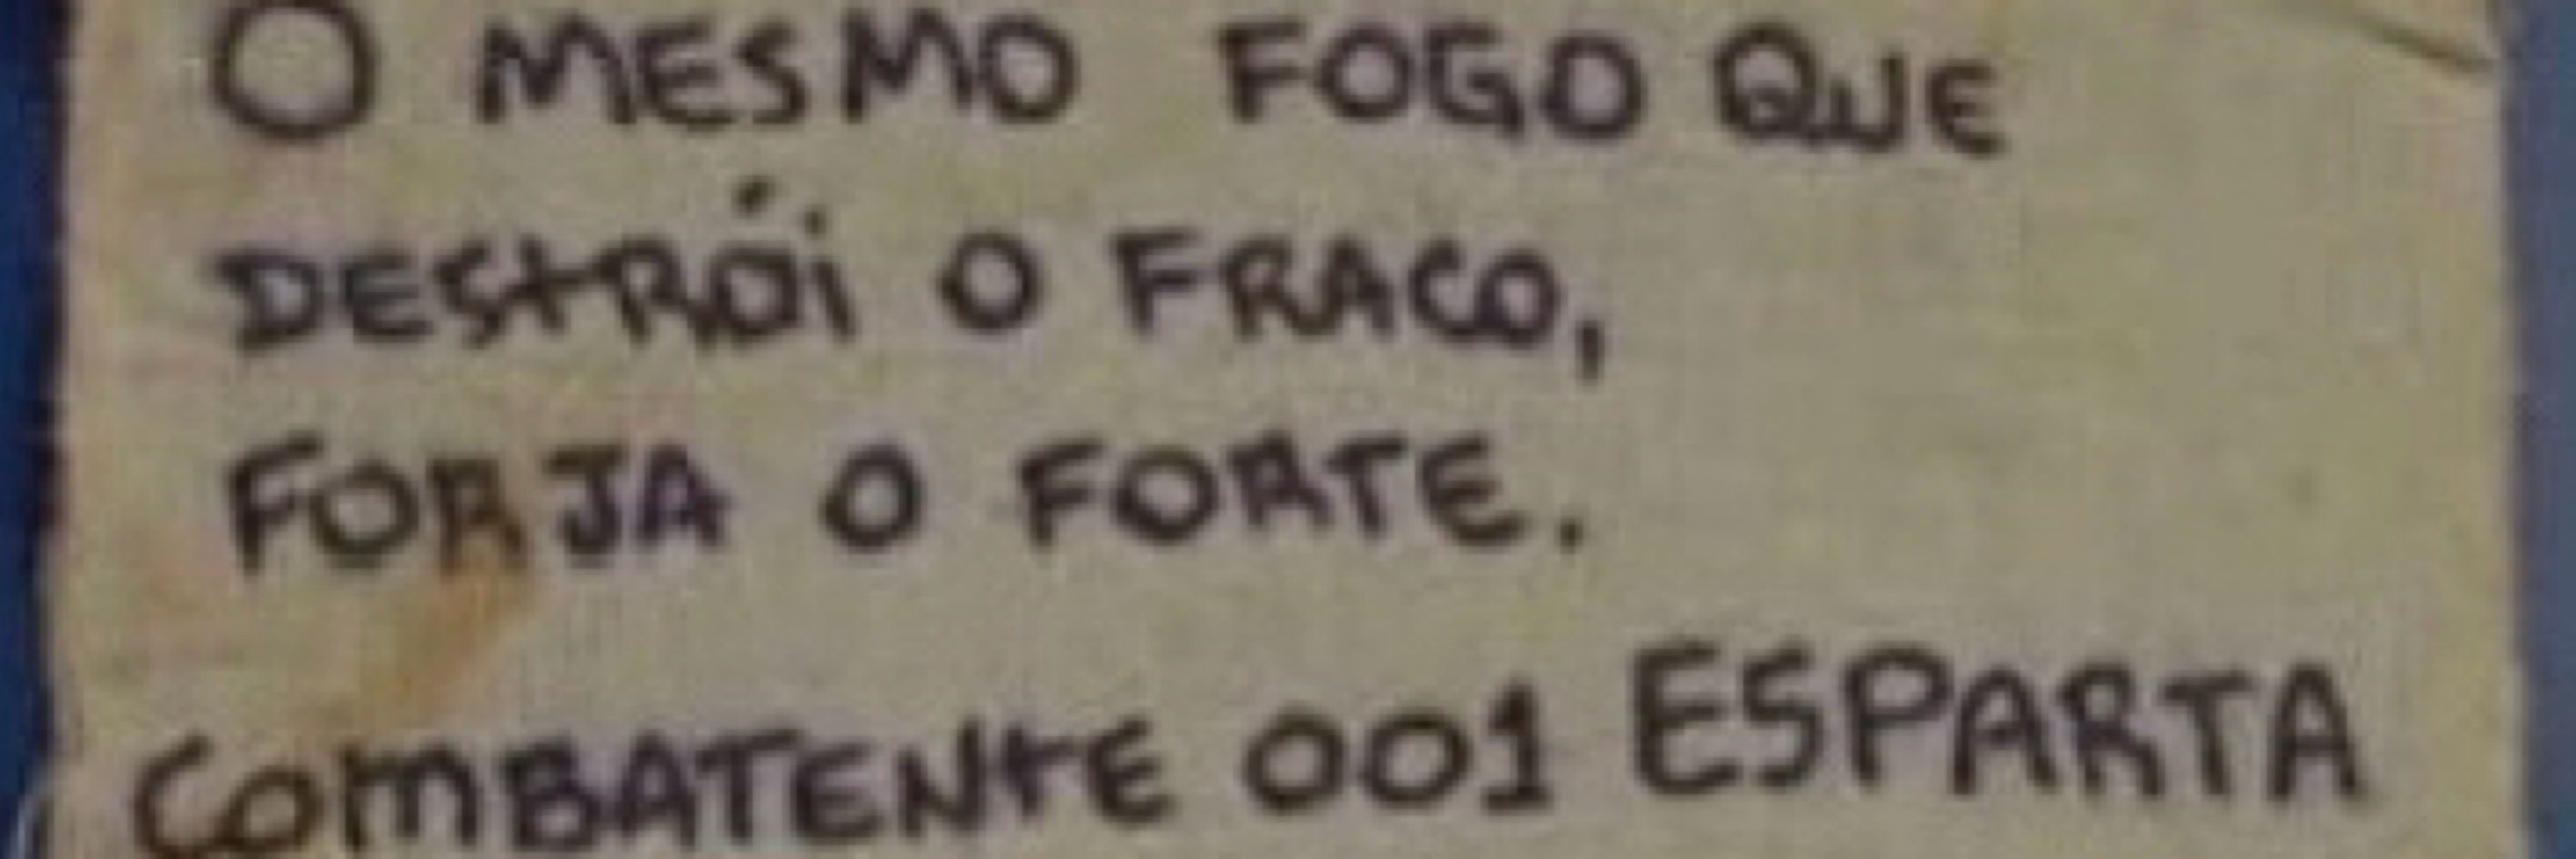 O MESMO FOGO QUE
DESTRÓi O FRACO,
FORJA O FORTE.
COMBATENTE 001 ESPARTA